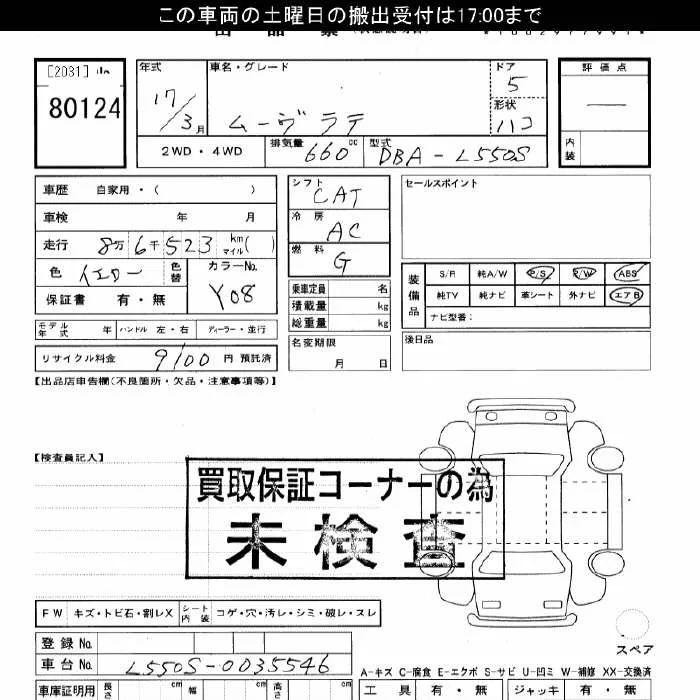 この車両の土曜日の搬出受付は17:00まで
[2031]
80124
年式 車名・グレード ドア 5 評価点
17/3月 ムーヴ ラテ 形状 ハコ ―
2WD・4WD 排気量 660cc 型式 DBA-L550S 内装
車歴 自家用・( ) シフト CAT セールスポイント
車検 年 月 冷房 AC
走行 8万6千523 km マイル( ) 燃料 G
色 イエロー 色替 カラーNo. Y08
装備品 S/R 純A/W P/S P/W ABS
保証書 有・無 乗車定員 名 純TV 純ナビ 革シート 外ナビ エアB
積載量 kg ナビ型番:
総重量 kg
モデル年式 年 ハンドル 左・右 ディーラー・並行 名変期限 月 日 後日品
リサイクル料金 9100 円 預託済
【出品店申告欄(不良箇所・欠品・注意事項等)】
【検査員記入】
買取保証コーナーの為
未検査
FW キズ・トビ石・割レX シート内装 コゲ・穴・汚レ・シミ・破レ・スレ
登録No. スペア
車台No. L550S-0035546
A-キズ C-腐食 E-エクボ S-サビ U-凹ミ W-補修 XX-交換済
車庫証明用 長さ cm 幅 cm 高さ cm 工具 有・無 ジャッキ 有・無